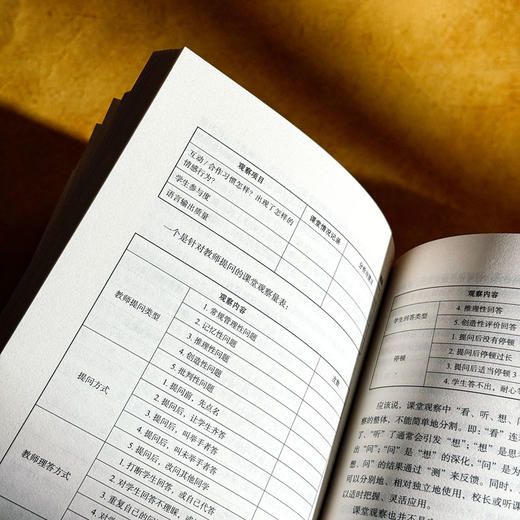 观察项目
课堂情况记录
互动/合作习惯怎样？出现了怎样的
情感行为？
学生参与度
语言输出质量
一个是针对教师提问的课堂观察量表：
观察内容
教师提问类型
1. 常规管理性问题
2. 记忆性问题
3. 推理性问题
4. 创造性问题
5. 批判性问题
提问方式
1. 提问前，先点名
2. 提问后，让学生齐答
3. 提问后，叫举手者答
4. 提问后，叫未举手者答
5. 提问后，改问其他同学
教师理答方式
1. 打断学生回答，或自己代答
2. 对学生回答不理睬，或
3. 重复自己的问
4. 对学
观察内容
学生回答类型
4. 推理性回答
5. 创造性评价回答
停顿
1. 提问后没有停顿
2. 提问后停顿过长
3. 提问后适当停顿 3
4. 学生答不出，耐心等
应该说，课堂观察中“看、听、想、
察的整体，不能简单地分割。即：“看”连
了，“听”了通常会引发“想”；“想”是思
出“问”；“问”是“想”的深化，“问”是为
想、问”的结果通过“测”来反馈。同时，
可以分别地、相对独立地使用，校长或听课
以适时把握、灵活应用。
课堂观察也并不是